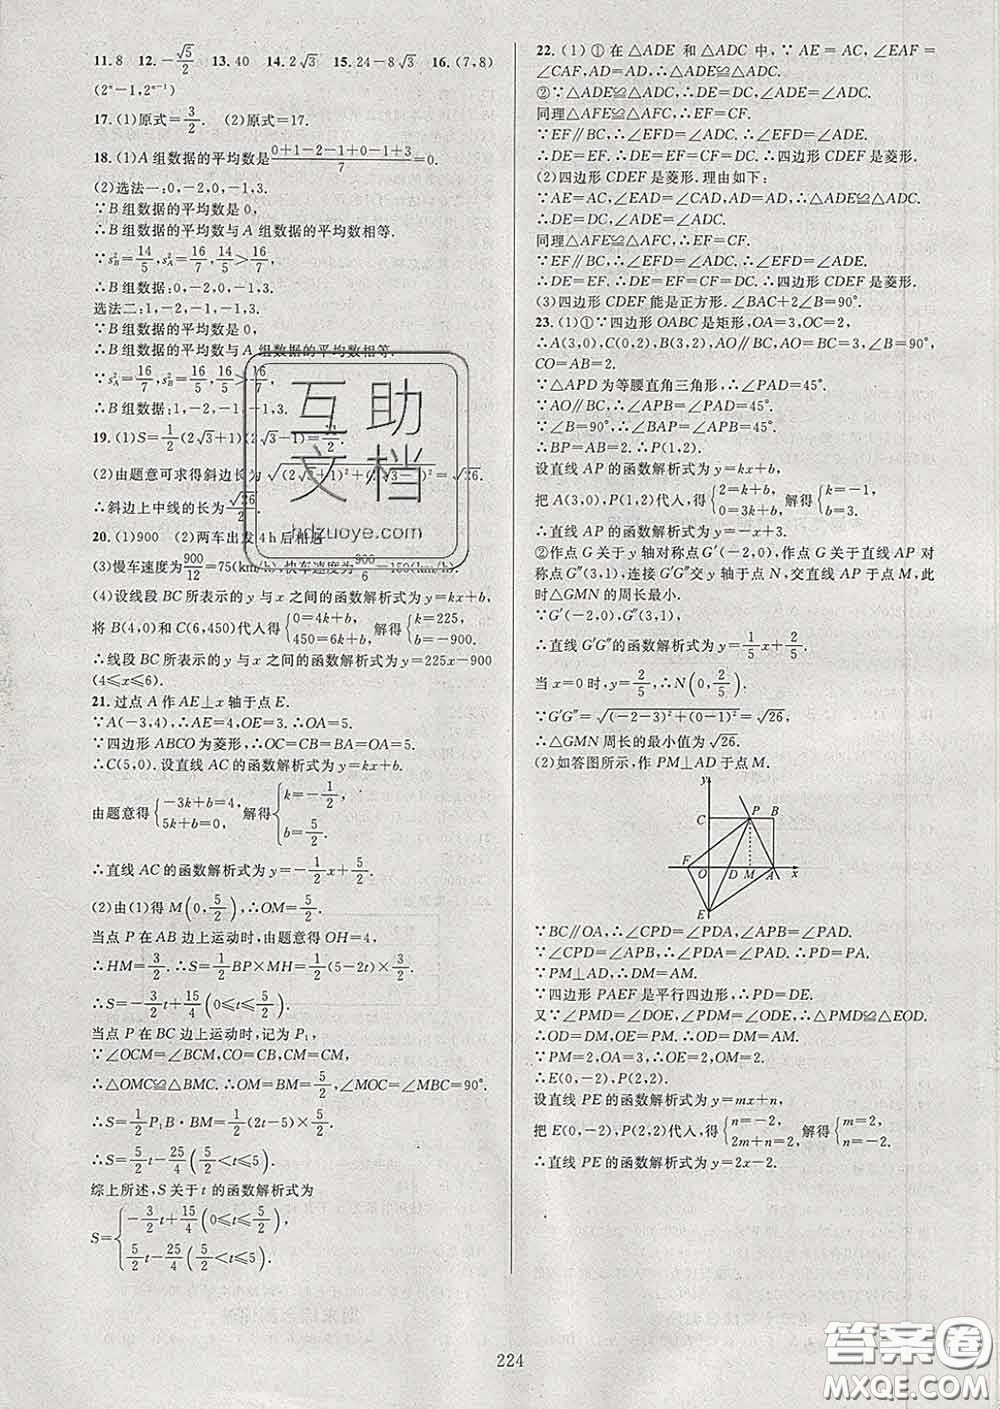 11.8  12.-√5/2  13.40  14.2√3  15.24-8√3  16.(7,8)
(2ⁿ-1,2ⁿ⁻¹)
17.(1)原式=3/2.  (2)原式=17.
18.(1)A组数据的平均数是(0+1-2-1+0-1+3)/7=0.
(2)选法一:0,-2,0,-1,3.
∵B组数据的平均数是0,
∴B组数据的平均数与A组数据的平均数相等.
∵s²_B=14/5,s²_A=16/7,14/5>16/7,
∴B组数据:0,-2,0,-1,3.
选法二:1,-2,-1,-1,3.
∵B组数据的平均数是0,
∴B组数据的平均数与A组数据的平均数相等.
∵s²_A=16/7,s²_B=16/5,16/5>16/7,
∴B组数据:1,-2,-1,-1,3.
19.(1)S=1/2(2√3+1)(2√3-1)=11/2.
(2)由题意可求得斜边长为√((2√3+1)²+(2√3-1)²)=√26.
∴斜边上中线的长为√26/2.
20.(1)900  (2)两车出发4h后相遇
(3)慢车速度为900/12=75(km/h),快车速度为900/6=150(km/h).
(4)设线段BC所表示的y与x之间的函数解析式为y=kx+b,
将B(4,0)和C(6,450)代人得{0=4k+b, 450=6k+b, 解得{k=225, b=-900.
∴线段BC所表示的y与x之间的函数解析式为y=225x-900
(4≤x≤6).
21.过点A作AE⊥x轴于点E.
∵A(-3,4),∴AE=4,OE=3.∴OA=5.
∵四边形ABCO为菱形,∴OC=CB=BA=OA=5.
∴C(5,0).设直线AC的函数解析式为y=kx+b.
由题意得{-3k+b=4, 5k+b=0, 解得{k=-1/2, b=5/2.
∴直线AC的函数解析式为y=-1/2x+5/2.
(2)由(1)得M(0,5/2),∴OM=5/2.
当点P在AB边上运动时,由题意得OH=4,
∴HM=3/2.∴S=1/2BP×MH=1/2(5-2t)×3/2.
∴S=-3/2t+15/4(0≤t≤5/2).
当点P在BC边上运动时,记为P₁,
∵∠OCM=∠BCM,CO=CB,CM=CM,
∴△OMC≌△BMC.∴OM=BM=5/2,∠MOC=∠MBC=90°.
∴S=1/2P₁B·BM=1/2(2t-5)×5/2.
∴S=5/2t-25/4(5/2<t≤5).
综上所述,S关于t的函数解析式为
S={-3/2t+15/4(0≤t≤5/2), 5/2t-25/4(5/2<t≤5).
22.(1)①在△ADE和△ADC中,∵AE=AC,∠EAF=
∠CAF,AD=AD,∴△ADE≌△ADC.
②∵△ADE≌△ADC,∴DE=DC,∠ADE=∠ADC.
同理△AFE≌△AFC,∴EF=CF.
∵EF∥BC,∴∠EFD=∠ADC.∴∠ADE=∠EFD.
∴DE=EF.∴DE=EF=CF=DC.∴四边形CDEF是菱形.
(2)四边形CDEF是菱形.理由如下:
∵AE=AC,∠EAD=∠CAD,AD=AD,∴△ADE≌△ADC.
∴DE=DC,∠ADE=∠ADC.
同理△AFE≌△AFC,∴EF=CF.
∵EF∥BC,∴∠EFD=∠ADC.∴∠ADE=∠EFD.
∴DE=EF.∴DE=EF=CF=DC.∴四边形CDEF是菱形.
(3)四边形CDEF能是正方形.∠BAC+2∠B=90°.
23.(1)①∵四边形OABC是矩形,OA=3,OC=2,
∴A(3,0),C(0,2),B(3,2),AO∥BC,AO=BC=3,∠B=90°,
CO=AB=2.
∵△APD为等腰直角三角形,∴∠PAD=45°.
∵AO∥BC,∴∠APB=∠PAD=45°.
∵∠B=90°,∴∠BAP=∠APB=45°.
∴BP=AB=2.∴P(1,2).
设直线AP的函数解析式为y=kx+b,
把A(3,0),P(1,2)代人,得{2=k+b, 0=3k+b, 解得{k=-1, b=3.
∴直线AP的函数解析式为y=-x+3.
②作点G关于y轴对称点G′(-2,0),作点G关于直线AP对
称点G″(3,1),连接G′G″交y轴于点N,交直线AP于点M,此
时△GMN的周长最小.
∵G′(-2,0),G″(3,1),
∴直线G′G″的函数解析式为y=1/5x+2/5.
当x=0时,y=2/5,∴N(0,2/5),
∵G′G″=√((-2-3)²+(0-1)²)=√26,
∴△GMN周长的最小值为√26.
(2)如答图所示,作PM⊥AD于点M.
y
C P B
F O D M A x
E
∵BC∥OA,∴∠CPD=∠PDA,∠APB=∠PAD.
∵∠CPD=∠APB,∴∠PDA=∠PAD.∴PD=PA.
∵PM⊥AD,∴DM=AM.
∵四边形PAEF是平行四边形,∴PD=DE.
又∵∠PMD=∠DOE,∠PDM=∠ODE,∴△PMD≌△EOD.
∴OD=DM,OE=PM.∴OD=DM=AM.
∵PM=2,OA=3,∴OE=2,OM=2.
∴E(0,-2),P(2,2).
设直线PE的函数解析式为y=mx+n,
把E(0,-2),P(2,2)代人,得{n=-2, 2m+n=2, 解得{m=2, n=-2.
∴直线PE的函数解析式为y=2x-2.
224
互助
文档
hdzuoye.com
答案圈
MXQE.COM